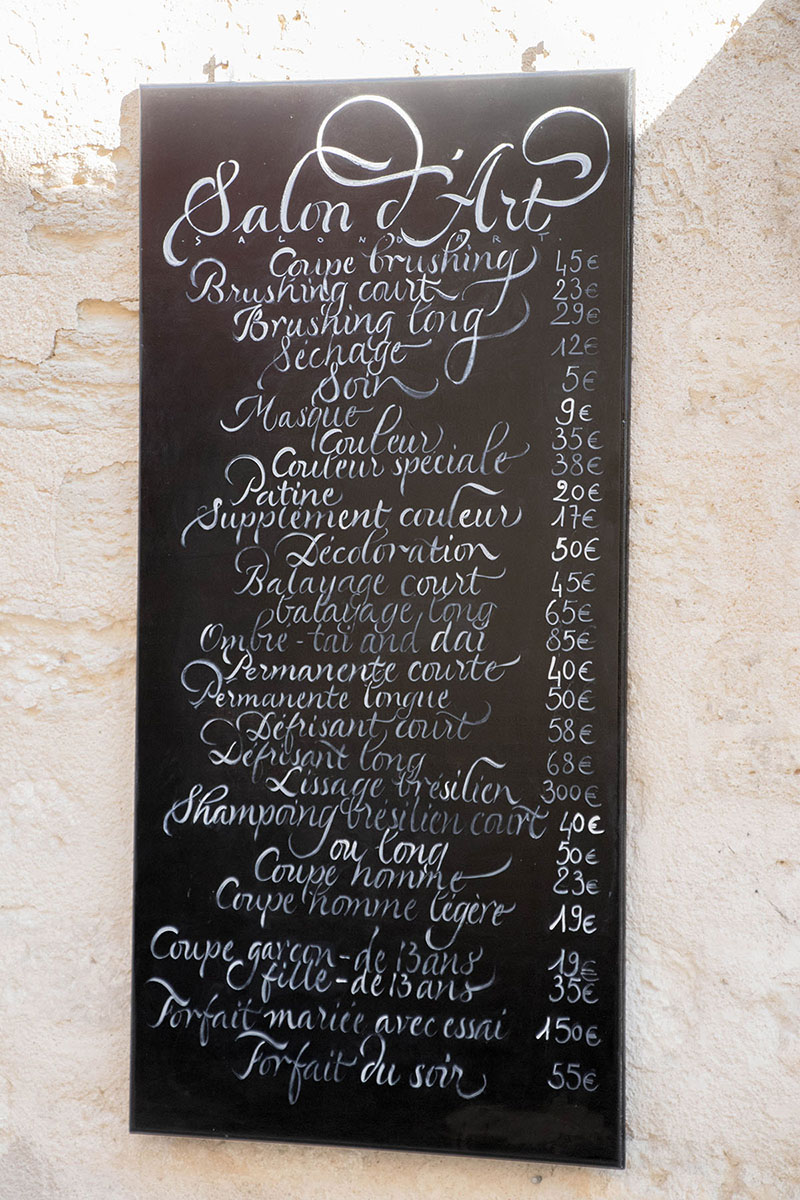 Salon d'Art
SALON D'ART.
Coupe brushing 45€
Brushing court 23€
Brushing long 29€
Séchage 12€
Soin 5€
Masque 9€
Couleur 35€
Couleur spéciale 38€
Patine 20€
Supplément couleur 17€
Décoloration 50€
Balayage court 45€
balayage long 65€
Ombre-tai and dai 85€
Permanente courte 40€
Permanente longue 50€
Défrisant court 58€
Défrisant long 68€
Lissage brésilien 300€
Shampoing brésilien court 40€
ou long 50€
Coupe homme 23€
Coupe homme légère 19€
Coupe garçon - de 13 ans 19€
fille - de 13 ans 35€
Forfait mariée avec essai 150€
Forfait du soir 55€